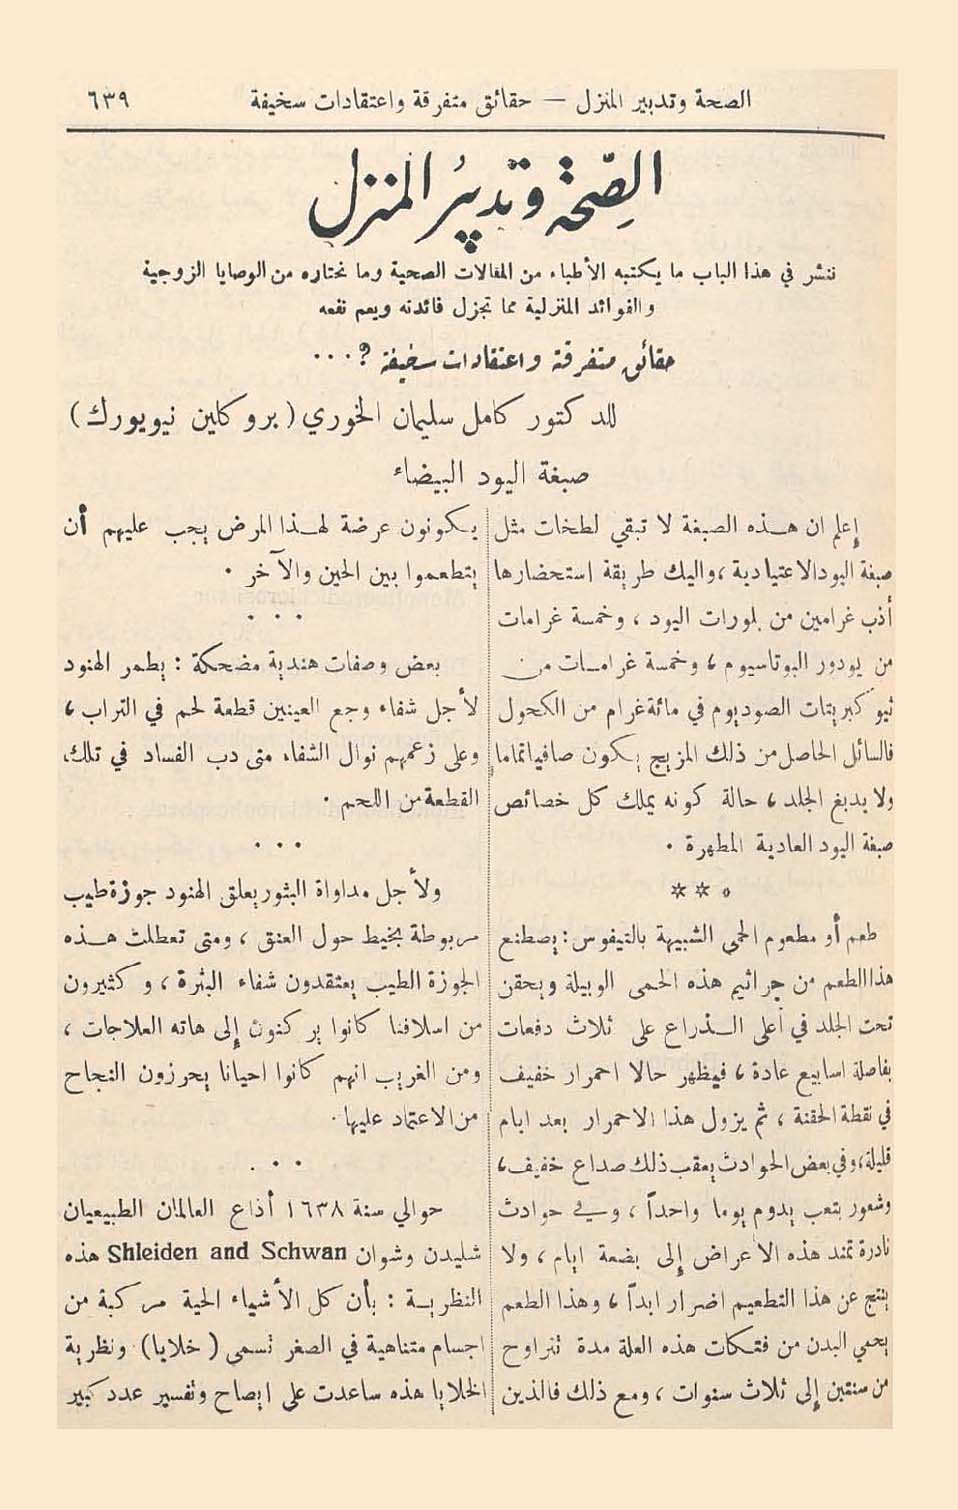 الصحة وتدبير المنزل — حقائق متفرقة واعتقادات سخيفة ٦٣٩
الصّحة وتدبيرُ المنزل
ننشر في هذا الباب ما يكتبه الأطباء من المقالات الصحية وما نختاره من الوصايا الزوجية
والفوائد المنزلية مما تجزل فائدته ويعم نفعه
حقائق متفرقة واعتقادات سخيفة ؟ ...
للدكتور كامل سليمان الخوري ( بروكلين نيويورك )
صبغة اليود البيضاء
إعلم ان هذه الصبغة لا تبقي لطخات مثل
صبغة اليود الاعتيادية ، واليك طريقة استحضارها
أذب غرامين من بلورات اليود ، وخمسة غرامات
من يودور البوتاسيوم ، وخمسة غرامات من
ثيو كبريتات الصوديوم في مائة غرام من الكحول
فالسائل الحاصل من ذلك المزيج يكون صافيا تماما
ولا يدبغ الجلد ، حالة كونه يملك كل خصائص
صبغة اليود العادية المطهرة .
***
طعم أو مطعوم الحمى الشبيهة بالتيفوس : يصطنع
هذا الطعم من جراثيم هذه الحمى الوبيلة ويحقن
تحت الجلد في أعلى الذراع على ثلاث دفعات
بفاصلة اسابيع عادة ، فيظهر حالا احمرار خفيف
في نقطة الحقنة ، ثم يزول هذا الاحمرار بعد ايام
قليلة ، وفي بعض الحوادث يعقب ذلك صداع خفيف ،
وشعور بتعب يدوم يوما واحداً ، وفي حوادث
نادرة تمتد هذه الاعراض إلى بضعة ايام ، ولا
ينتج عن هذا التطعيم اضرار ابداً ، وهذا الطعم
يحمي البدن من فتكات هذه العلة مدة تتراوح
من سنتين إلى ثلاث سنوات ، ومع ذلك فالذين
يكونون عرضة لهذا المرض يجب عليهم أن
يتطعموا بين الحين والآخر .
...
بعض وصفات هندية مضحكة : يطمر الهنود
لأجل شفاء وجع العينين قطعة لحم في التراب ،
وعلى زعمهم نوال الشفاء متى دب الفساد في تلك
القطعة من اللحم .
...
ولأجل مداواة البثور يعلق الهنود جوزة طيب
مربوطة بخيط حول العنق ، ومتى تعطلت هذه
الجوزة الطيب يعتقدون شفاء البثرة ، وكثيرون
من اسلافنا كانوا يركنون إلى هاته العلاجات ،
ومن الغريب انهم كانوا احيانا يحرزون النجاح
من الاعتماد عليها .
...
حوالي سنة ١٦٣٨ أذاع العالمان الطبيعيان
شليدن وشوان Shleiden and Schwan هذه
النظرية : بأن كل الأشياء الحية مركبة من
اجسام متناهية في الصغر تسمى ( خلايا ) ونظرية
الخلايا هذه ساعدت على ايصاح وتفسير عدد كبير